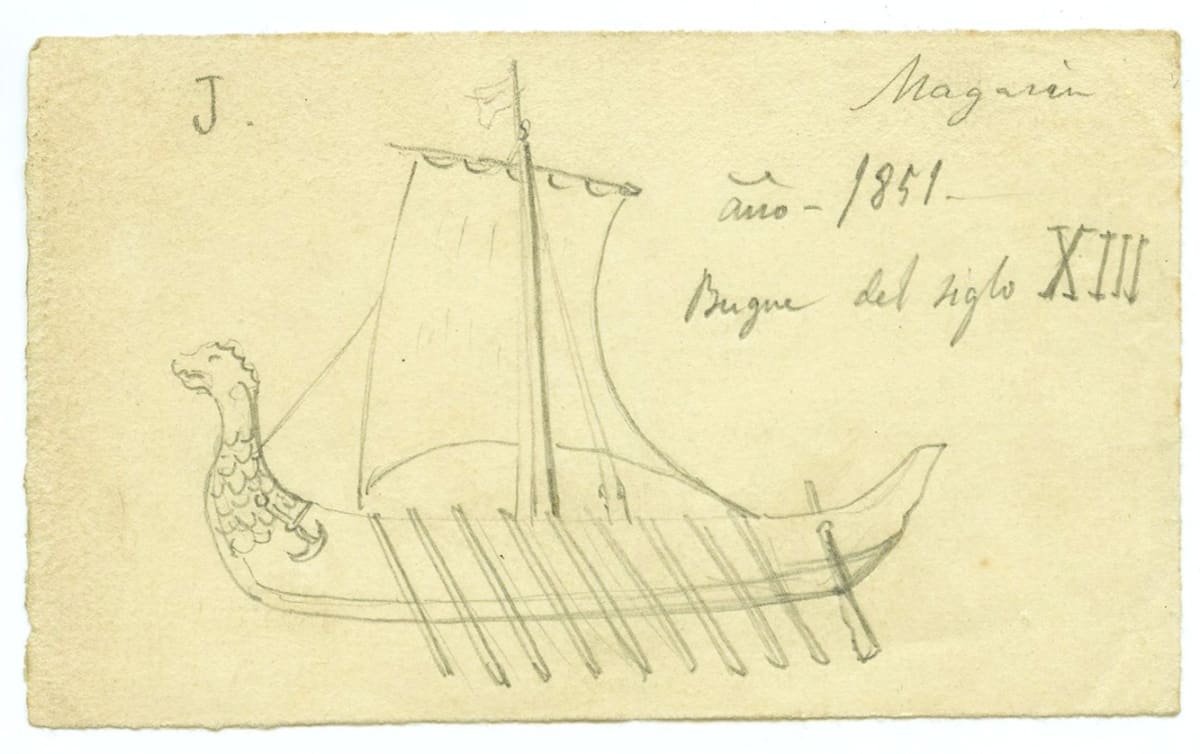 J.
Magasin
año - 1851 -
Buque del siglo XIII